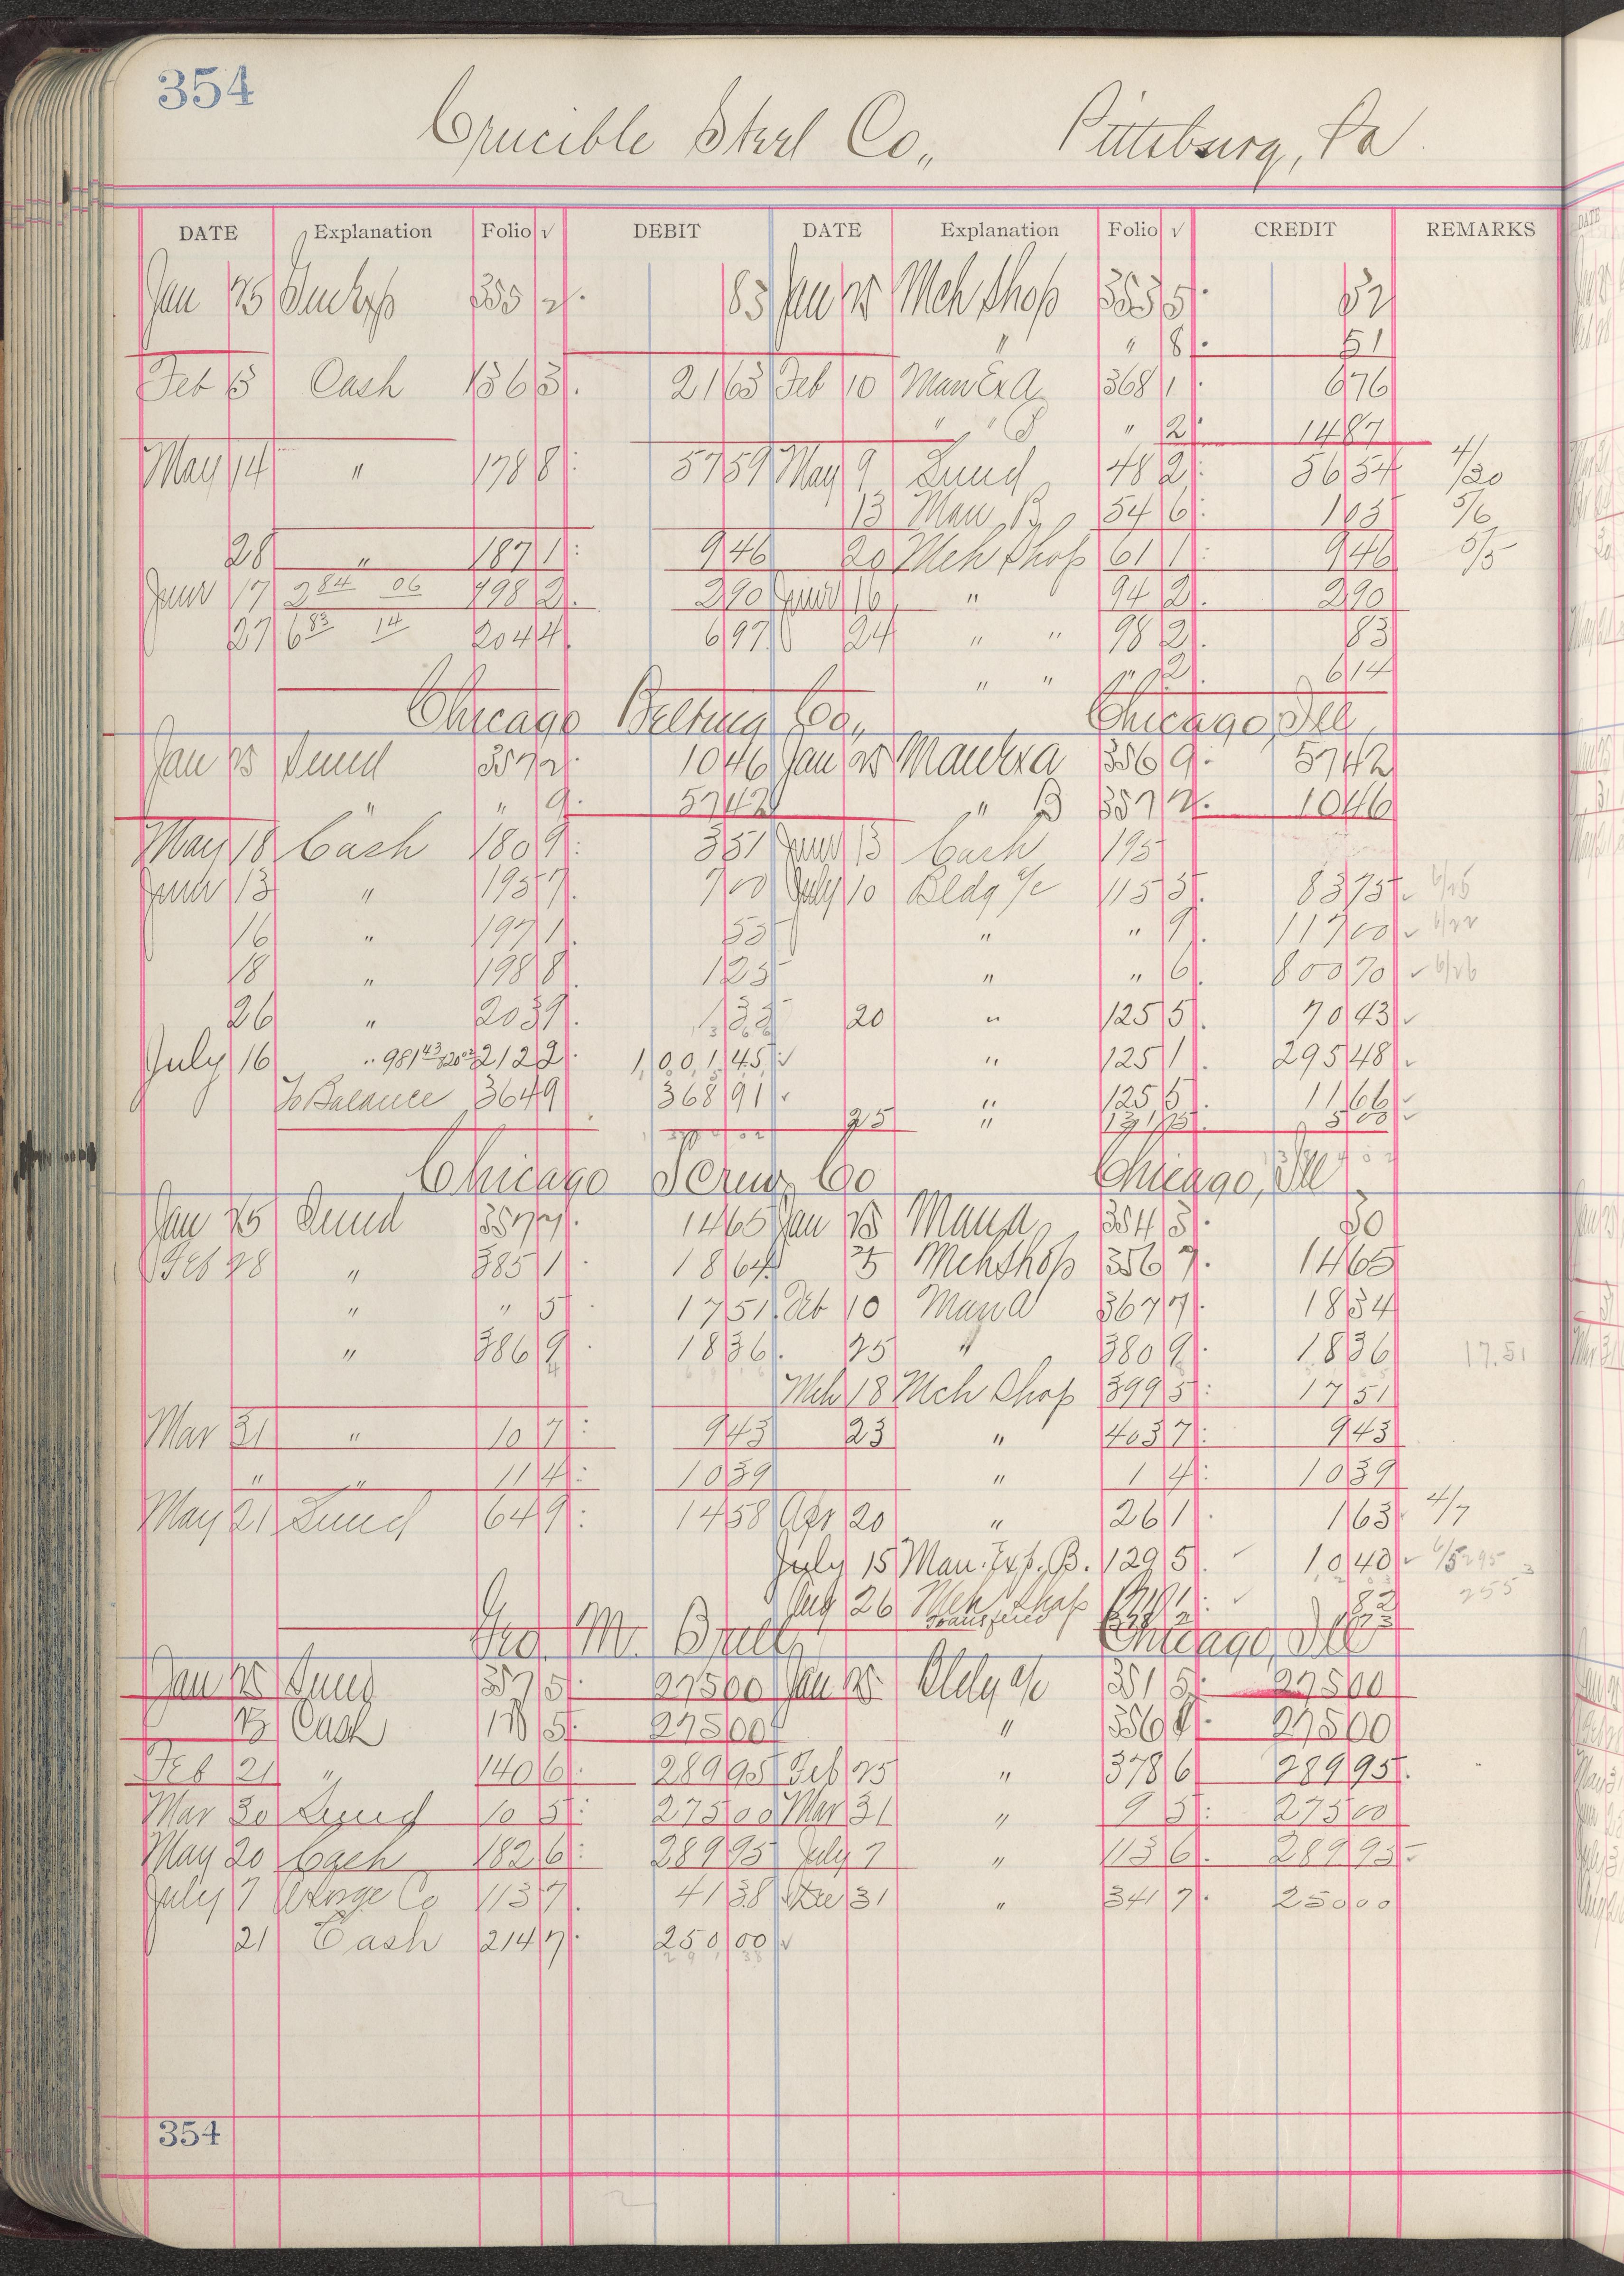 354
Crucible Steel Co., Pittsburg, Pa
DATE Explanation Folio √ DEBIT DATE Explanation Folio √ CREDIT REMARKS
Jan 25 355 2 83 Jan 25 Mch Shop 353 5 32
" " 8 51
Feb 13 Cash 136 3 21 63 Feb 10 Man Ex A 368 1 6 76
" " " 2 14 87
May 14 " 178 8 57 59 May 9 Sund 48 2 56 54 4/30
13 Man B 54 6 1 05 5/6
28 " 187 1 9 46 20 Mch Shop 61 1 9 46 5/5
June 17 284 06 198 2 2 90 June 16 " 94 2 2 90
27 683 14 204 4 6 97 24 " " 98 2 83
" " " 2 6 14
Chicago Belting Co., Chicago, Ill
Jan 25 Sund 357 2 10 46 Jan 25 Man Ex A 356 9 57 42
" " 9 57 42 " B 357 2 10 46
May 18 Cash 180 9 3 51 June 13 Cash 195
June 13 " 195 7 7 00 July 10 Bldg a/c 115 5 83 75 6/15
16 " 197 1 55 " " 9 117 00 6/22
18 " 198 8 1 25 " " 6 800 70 6/26
26 " 203 9 1 32 20 " 125 5 70 43
July 16 " 981 43 20 02 212 2 1,001 45 " 125 1 295 48
To Balance 364 9 368 91 " 125 6 11 66
25 " 131 5 03
Chicago Screw Co Chicago, Ill
Jan 25 Sund 357 7 14 65 Jan 25 Man A 354 3 30
Feb 28 " 385 1 18 64 25 Mch Shop 356 7 14 65
" " 5 17 51 Feb 10 Man A 367 7 18 34
" 386 9 18 36 25 " 380 9 18 36 17.51
Mch 18 Mch Shop 399 5 17 51
Mar 31 " 10 7 9 43 23 " 403 7 9 43
" " 11 4 10 39 " 1 4 10 39
May 21 Sund 64 9 14 58 Apr 20 " 26 1 1 63 4/7
July 15 Man. Exp. B. 129 5 10 40 6/5 295
Aug 26 Mch Shop 82 255
Transferred
Geo. M. Brill Chicago, Ill
Jan 25 Sund 357 5 275 00 Jan 25 Bldg a/c 351 5 275 00
Cash 118 5 275 00 " 356 275 00
Feb 21 " 140 6 289 95 Feb 25 " 378 6 289 95
Mar 30 Sund 10 5 275 00 Mar 31 " 9 5 275 00
May 20 Cash 182 6 289 95 July 7 " 113 6 289 95
July 7 Co 113 7 41 38 Dec 31 " 341 7 250 00
21 Cash 214 7 250 00
354